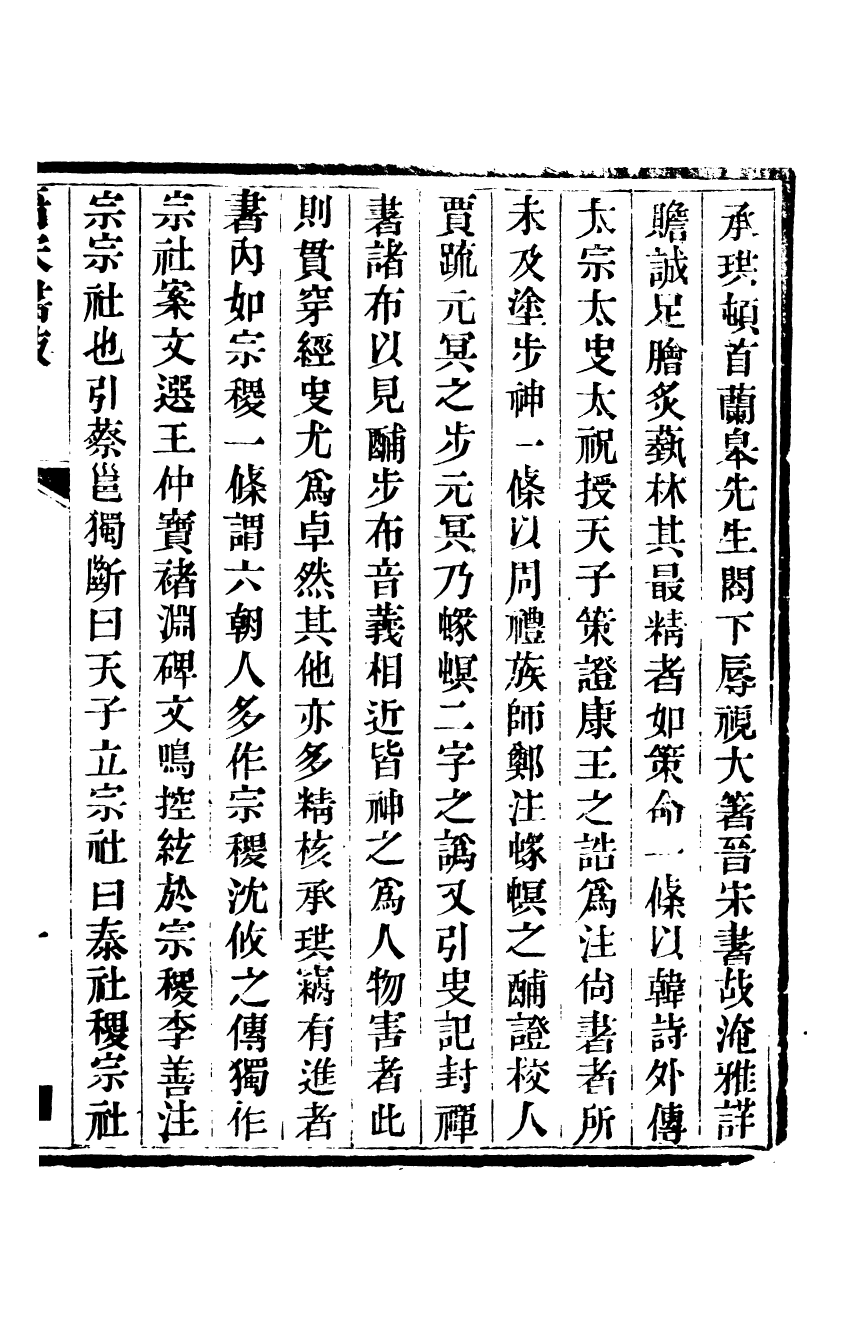 承珙頓首蘭皋先生閣下辱視大箸晉宋書故淹雅詳
贍誠足膾炙藝林其最精者如策命一條以韓詩外傳
太宗太史太祝授天子策證康王之誥爲注尙書者所
未及塗步神一條以周禮族師鄭注蝝螟之酺證校人
賈疏元冥之步元冥乃蝝螟二字之譌又引史記封禪
書諸布以見酺步布音義相近皆神之爲人物害者此
則貫穿經史尤爲卓然其他亦多精核承珙竊有進者
書內如宗稷一條謂六朝人多作宗稷沈攸之傳獨作
宗社案文選王仲寶褚淵碑文鳴控弦於宗稷李善注
宗宗社也引蔡邕獨斷曰天子立宗社曰泰社稷宗社
晉宋書故
一